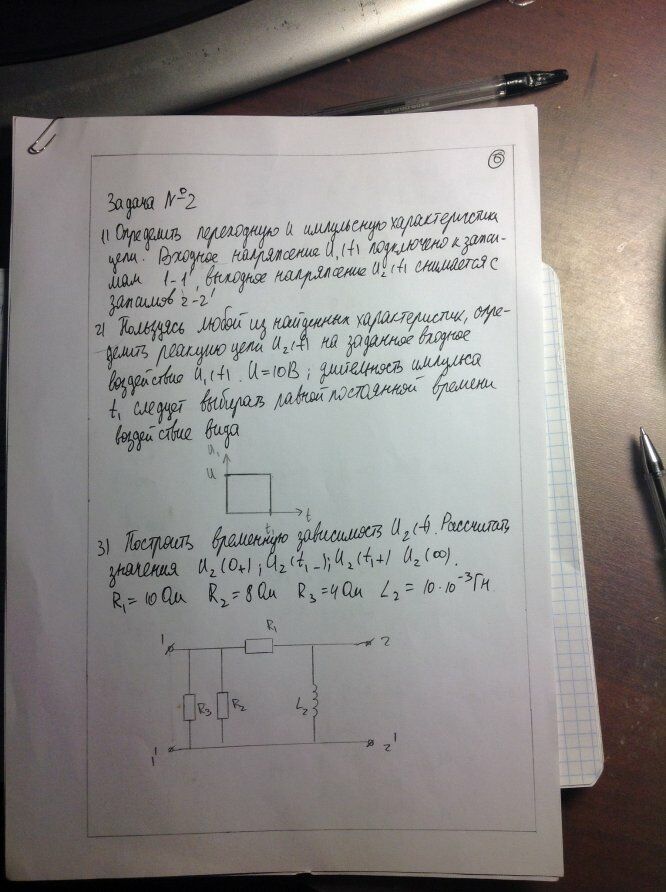 6
Задача №2
1) Определить переходную и импульсную характеристики
цепи. Входное напряжение U₁(t) подключено к зажи-
мам 1-1', выходное напряжение U₂(t) снимается с
зажимов 2-2'
2) Пользуясь любой из найденных характеристик, опре-
делить реакцию цепи U₂(t) на заданное входное
воздействие U₁(t). U=10В; длительность импульса
t₁ следует выбирать равной постоянной времени
воздействие вида
U₁
U
t₁
t
3) Построить временную зависимость U₂(t). Рассчитать
значения U₂(0+); U₂(t₁-); U₂(t₁+) U₂(∞).
R₁=10 Ом R₂=8 Ом R₃=4 Ом L₂=10·10⁻³ Гн
R₁
1
2
R₃
R₂
L₂
1'
2'